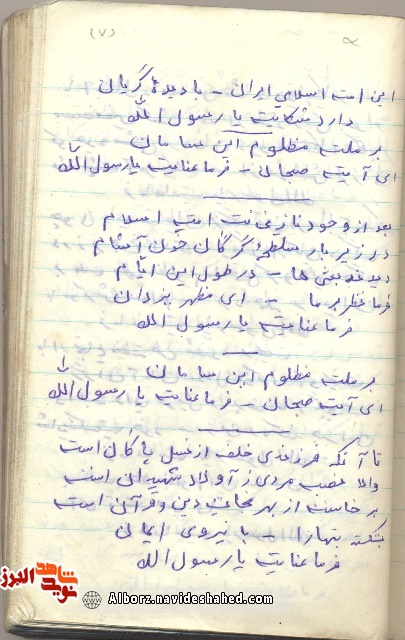 (٧)
این امت اسلامی ایران - با دیدهٔ گریان
دارد شکایت یا رسول الله
بر ملت مظلوم این سامان
ای آیت سبحان - فرما عنایت یا رسول الله
بعد از وجود نازنینت امت اسلام
در زیر بار سلطهٔ گرگان خون آشام
دیده ستمی ها - در طول این ایام
فرما نظر بر ما - ای مظهر یزدان
فرما عنایت یا رسول الله
بر ملت مظلوم این سامان
ای آیت سبحان - فرما عنایت یا رسول الله
تا آنکه فرزندی خلف از نسل پاکان است
والا نسب مردی ز اولاد شهیدان است
بر خاست از بهر حمایت دین و قرآن است
بشکسته بتها را - با نیروی ایمان
فرما عنایت یا رسول الله
شاهد
نوید
البرز
Alborz.navideshahed.com